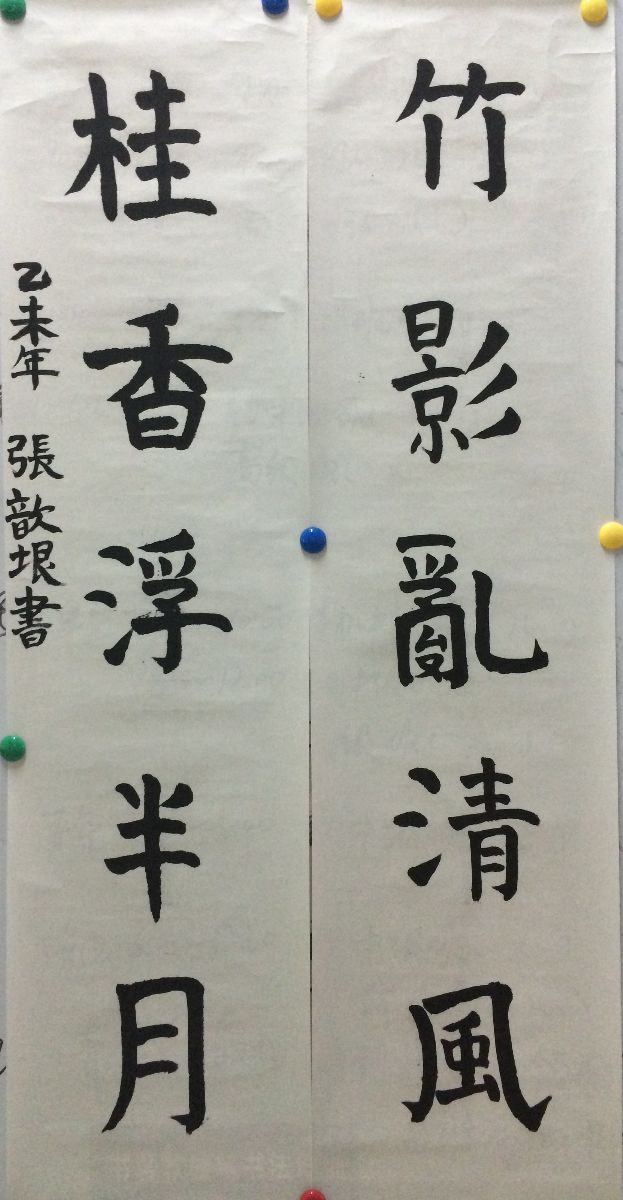 竹影亂清風
桂香浮半月
乙未年 張歆垠書